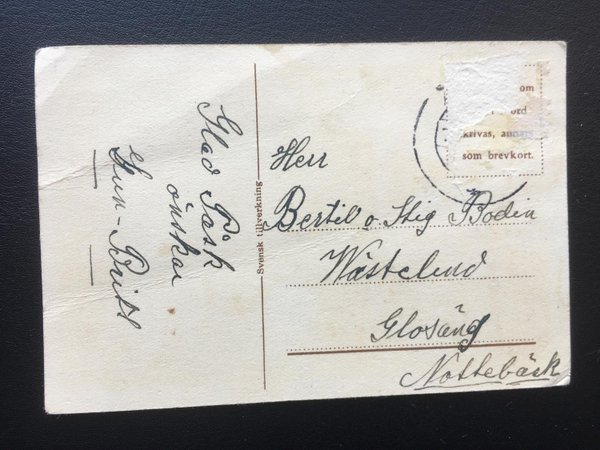 Glad Påsk
önskar
Gun-Britt
Svensk tillverkning
om
ord
krivas, annars
som brevkort.
Herr
Bertil o. Stig Bodin
Wästelund
Glosäng
Nottebäck